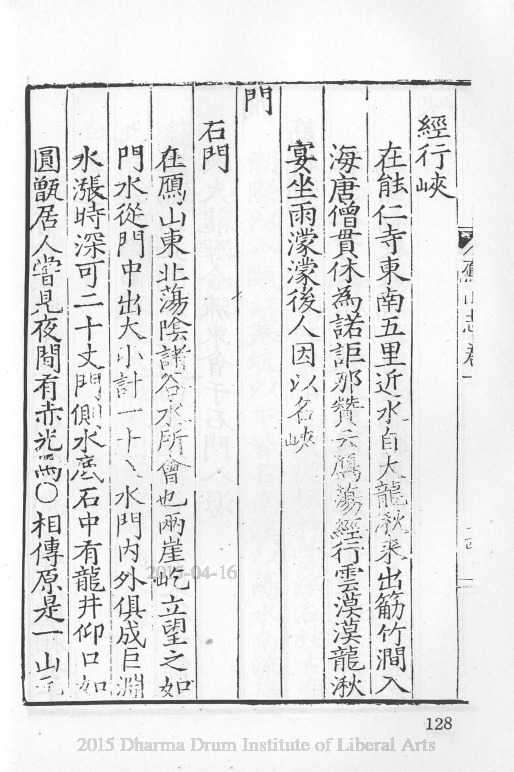 經行峽
在能仁寺東南五里近水自大龍湫來出筋竹澗入
海唐僧貫休為諾詎那贊云鴈蕩經行雲漠漠龍湫
宴坐雨濛濛後人因以名峽
門
石門
在鴈山東北蕩陰諸谷水所會也兩崖屹立望之如
門水從門中出大小計一十、水門內外俱成巨淵
水漲時深可二十丈門側水底石中有龍井仰口如
圓甑居人嘗見夜間有赤光焉○相傳原是一山
鴈山志卷一
128
2015-04-16
2015 Dharma Drum Institute of Liberal Arts